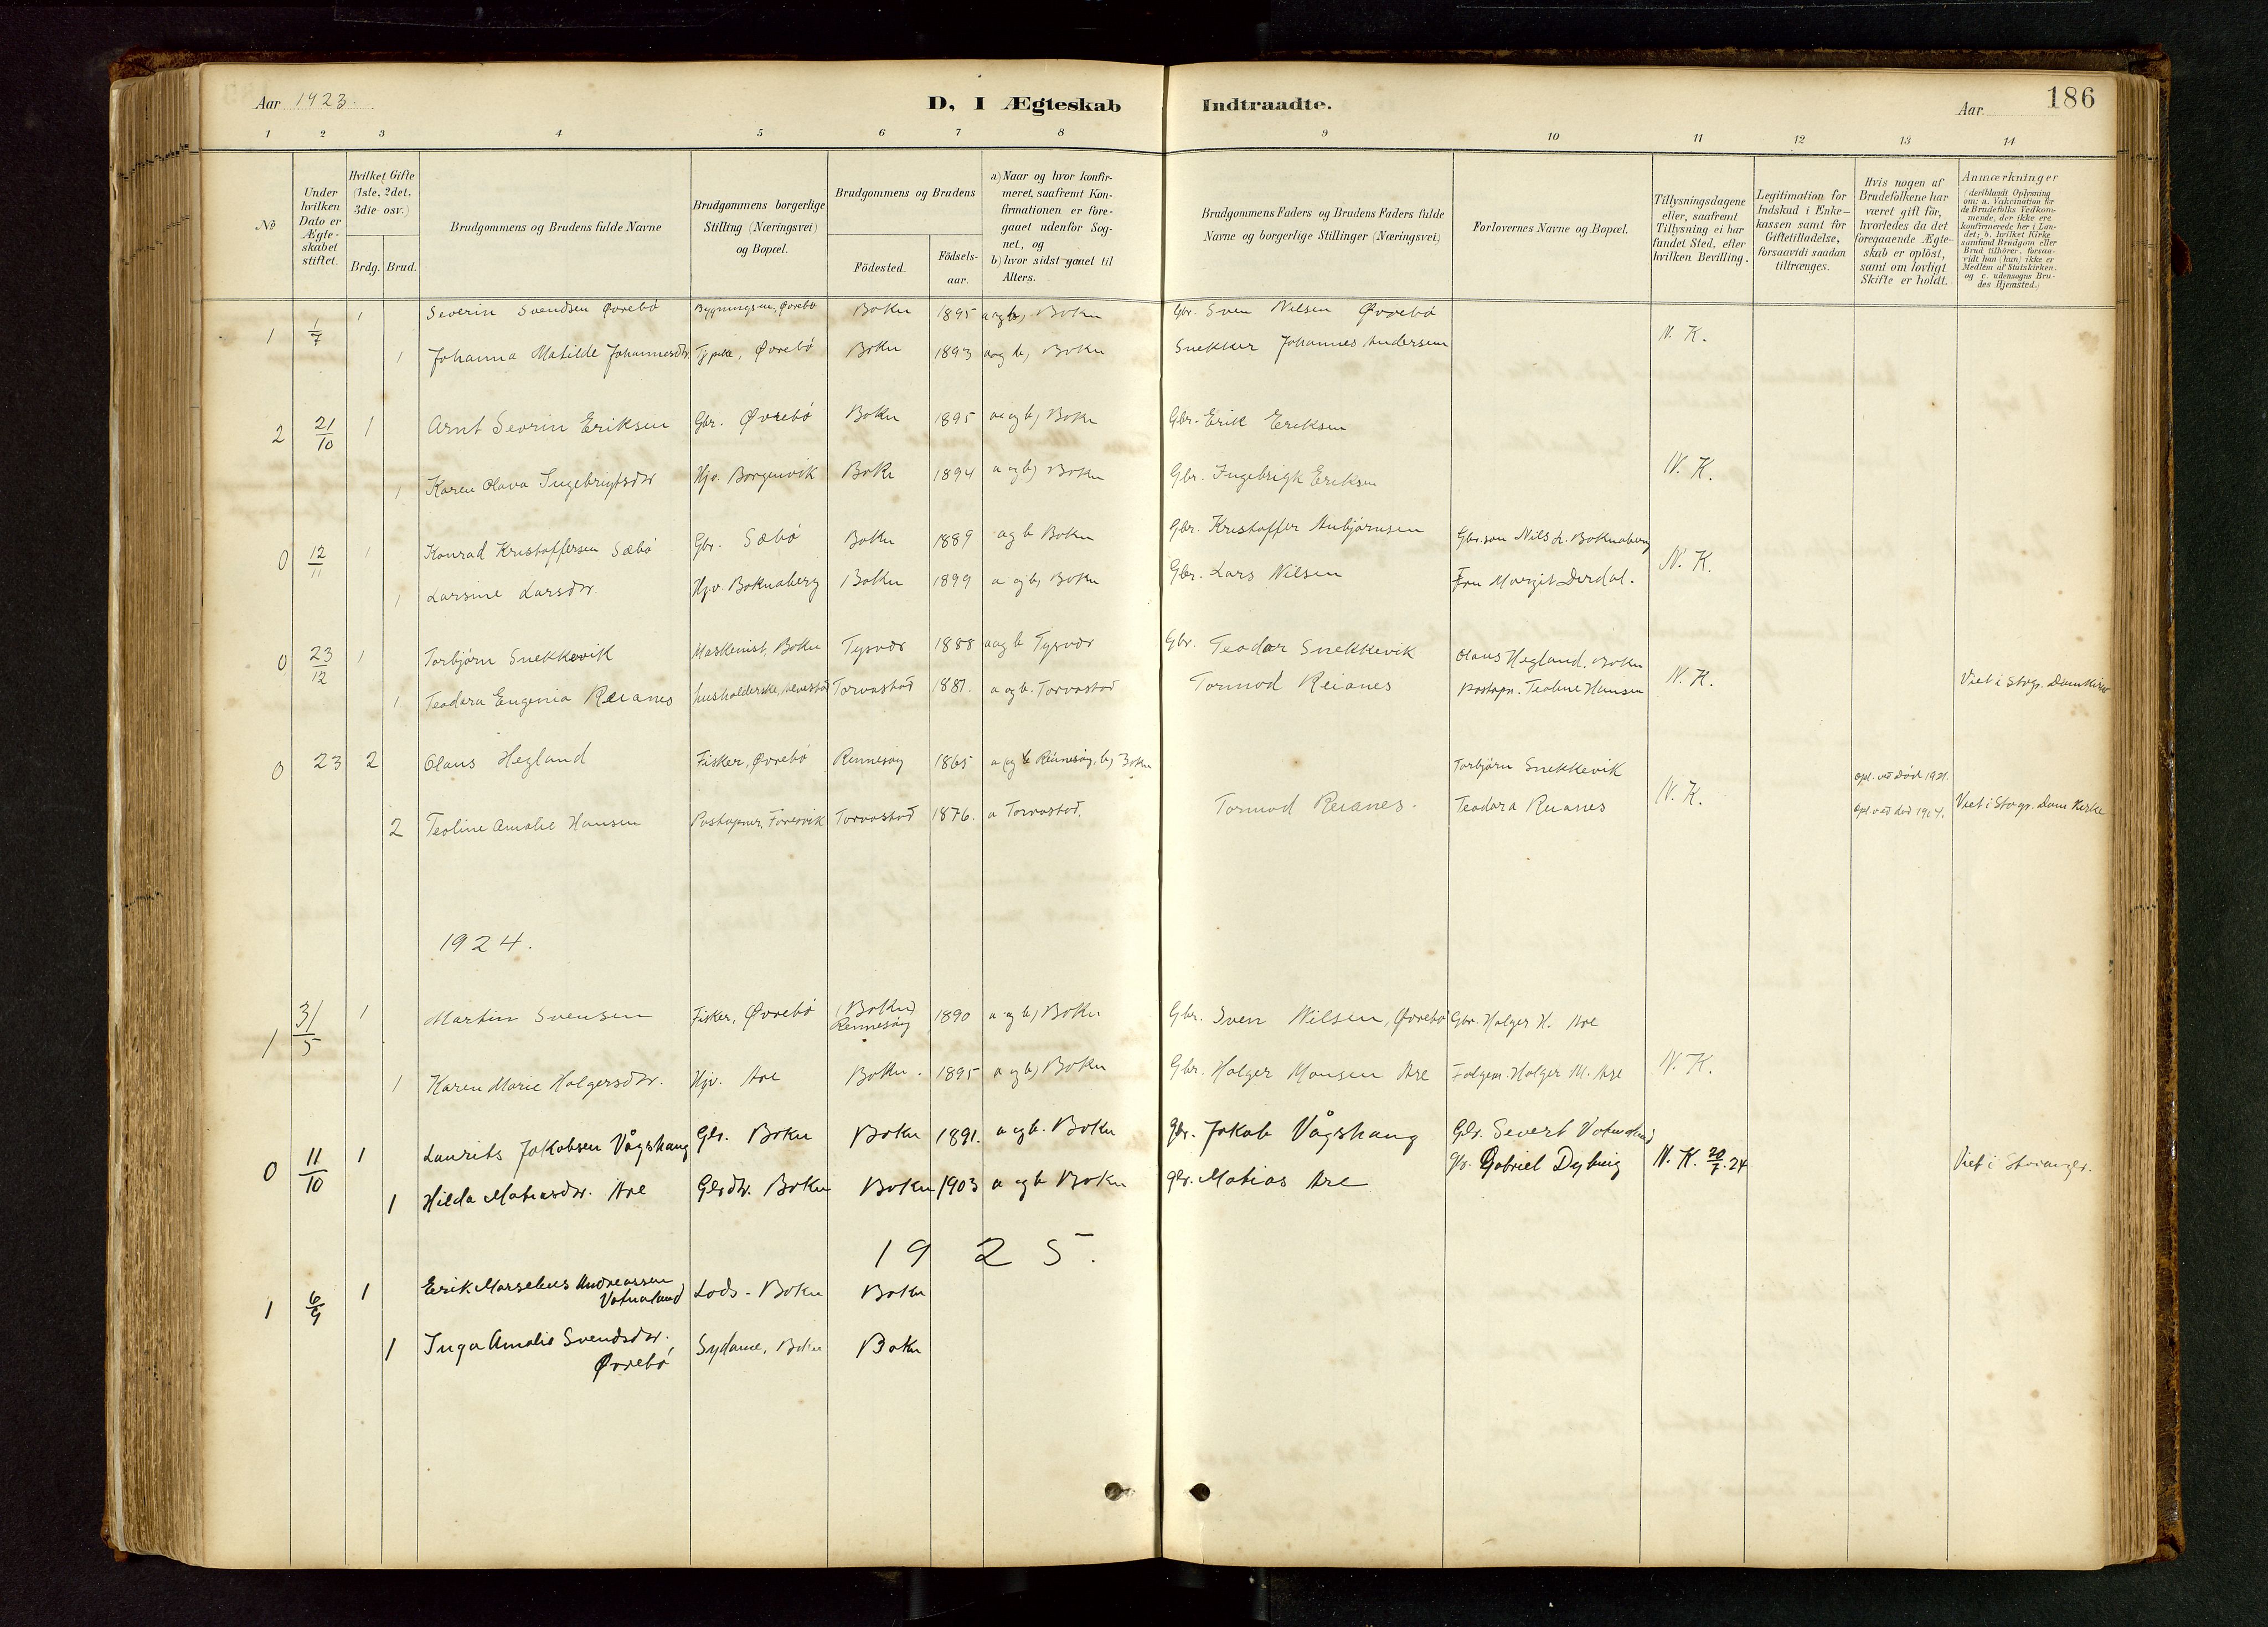 Aar 1923.
D, I Ægteskab Indtraadte.
Aar 186
1 2 3 4 5 6 7 8 9 10 11 12 13 14
No
Under hvilken Dato er Ægte-skabet stiftet.
Hvilket Gifte (1ste, 2det, 3die osv.)
Brdg. Brud.
Brudgommens og Brudens fulde Navne
Brudgommens borgerlige Stilling (Næringsvei) og Bopæl.
Brudgommens og Brudens
Födested.
Födsels-aar.
a) Naar og hvor konfir-meret, saafremt Kon-firmationen er fore-gaaet udenfor Sog-net, og
b) hvor sidst gaaet til Alters.
Brudgommens Faders og Brudens Faders fulde Navne og borgerlige Stillinger (Næringsvei)
Forlovernes Navne og Bopæl.
Tillysningsdagene eller, saafremt Tillysning ei har fundet Sted, efter hvilken Bevilling.
Legitimation for Indskud i Enke-kassen samt for Giftetilladelse, forsaavidt saadan tiltrænges.
Hvis nogen af Brudefolkene har været gift för, hvorledes da det foregaaende Ægte-skab er oplöst, samt om lovligt Skifte er holdt.
Anmærkninger
(deriblandt Oplysning om: a. Vakcination för de Brudefolks Vedkom-mende, der ikke ere konfirmerede her i Lan-det; b. hvilket Kirke samfund Brudgom eller Brud tilhörer, forsaa-vidt han (hun) ikke er Medlem af Statskirken. og c. udensogns Bru-des Hjemsted.)
1 1/7 1 Severin Svendsen Øvrebö Bygningsm., Øvrebö Bokn 1895 a og b) Bokn Gbr. Sven Nilsen Øvrebö
1 Johanna Matilde Johannesdtr. Øvrebö Bokn 1893 a og b) Bokn Snekker Johannes Andersen N. K.
2 21/10 1 Arnt Sevrin Eriksen Gbr. Øvrebö Bokn 1895 a og b) Bokn Gbr. Erik Eriksen
1 Karen Olava Ingebrigtsdtr Hjv. Borgenvik Bokn 1894 a og b) Bokn Gbr. Ingebrigt Eriksen N. K.
0 12/11 1 Konrad Kristoffersen Sæbö Gbr. Sæbö Bokn 1889 a og b Bokn Gbr. Kristoffer Anbjörnsen Gbr.sön Nils L. Boknaberg
1 Larsine Larsdtr. Hjv. Boknaberg Bokn 1899 a og b) Bokn Gbr. Lars Nilsen Fru Margit Dirdal. N. K.
0 23/12 1 Torbjörn Snekkevik Maskinist, Bokn Tysvær 1888 a og b Tysvær Gbr. Teodor Snekkevik Olaus Hegland, Bokn
1 Teodora Eugenia Reianes husholderske, Torvastad 1881. a og b. Torvastad Tormod Reianes postapn. Teoline Hansen N. K. Viet i Stvgr. Domkirke
0 23 2 Olaus Hegland Fisker, Øvrebö Rennesöy 1865 a og b Rennesöy, b) Bokn Torbjörn Snekkevik opl. ved död 1921.
2 Teoline Amalie Hansen Postapner, Föresvik Torvastad 1876. a Torvastad. Tormod Reianes. Teodora Reianes N. K. opl. ved död 1914. Viet i Stvgr. Dom Kirke
1924.
1 31/5 1 Martin Svensen Fisker, Øvrebö (Bokn) Rennesöy 1890 a og b) Bokn Gbr. Sven Nilsen, Øvrebö Gbr. Holger H. Are
1 Karen Marie Holgersdtr. Hjv. Are Bokn. 1895 a og b) Bokn Gbr. Holger Monsen Are Folgem. Holger M. Are N. K.
0 11/10 1 Laurits Jakobsen Vågshaug Gbr. Bokn Bokn 1891. a og b. Bokn gbr. Jakob Vågshaug Gbr. Severt Vatnaland
1 Hilda Matiasdtr. Are Gbrdtr. Bokn Bokn 1903 a og b Bokn gbr. Matias Are gbr. Gabriel Dybing N. K. 20/7. 24 Viet i Stavanger.
1925.
1 6/9 1 Erik Marselius Andreassen Vatnaland Lods - Bokn Bokn
1 Inga Amalie Svendsdtr. Øvrebö Sydame, Bokn Bokn